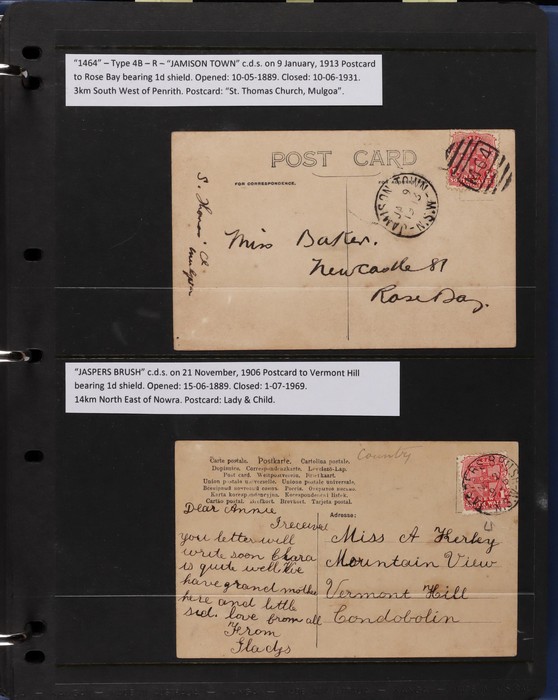 "1464" – Type 4B – R – "JAMISON TOWN" c.d.s. on 9 January, 1913 Postcard
to Rose Bay bearing 1d shield. Opened: 10-05-1889. Closed: 10-06-1931.
3km South West of Penrith. Postcard: "St. Thomas Church, Mulgoa".
POST CARD
FOR CORRESPONDENCE.
JAMISON-TOWN-N.S.W
JA 9
13
1464
S. Thomas' Ch
Mulgoa
Miss Baker.
Newcastle St
Rose Bay.
"JASPERS BRUSH" c.d.s. on 21 November, 1906 Postcard to Vermont Hill
bearing 1d shield. Opened: 15-06-1889. Closed: 1-07-1969.
14km North East of Nowra. Postcard: Lady & Child.
Carte postale. Postkarte. Cartolina postale.
Dopisnice. Correspondenzkarte. Levelező-Lap.
Post card. Weltpostverein. Briefkaart.
Union postale universelle. Unione postale universale.
Karta korespondencyjna. Korespondenční lístek.
Cartão postal. Brefkort. Brevkort. Tarjeta postal.
Country
Adresse:
Dear Annie
I received
you letter will
write soon Clara
is quite well We
have grand mother
here and little
sid. love from all
From
Gladys
Miss A Kerley
Mountain View
Vermont Hill
Condobolin